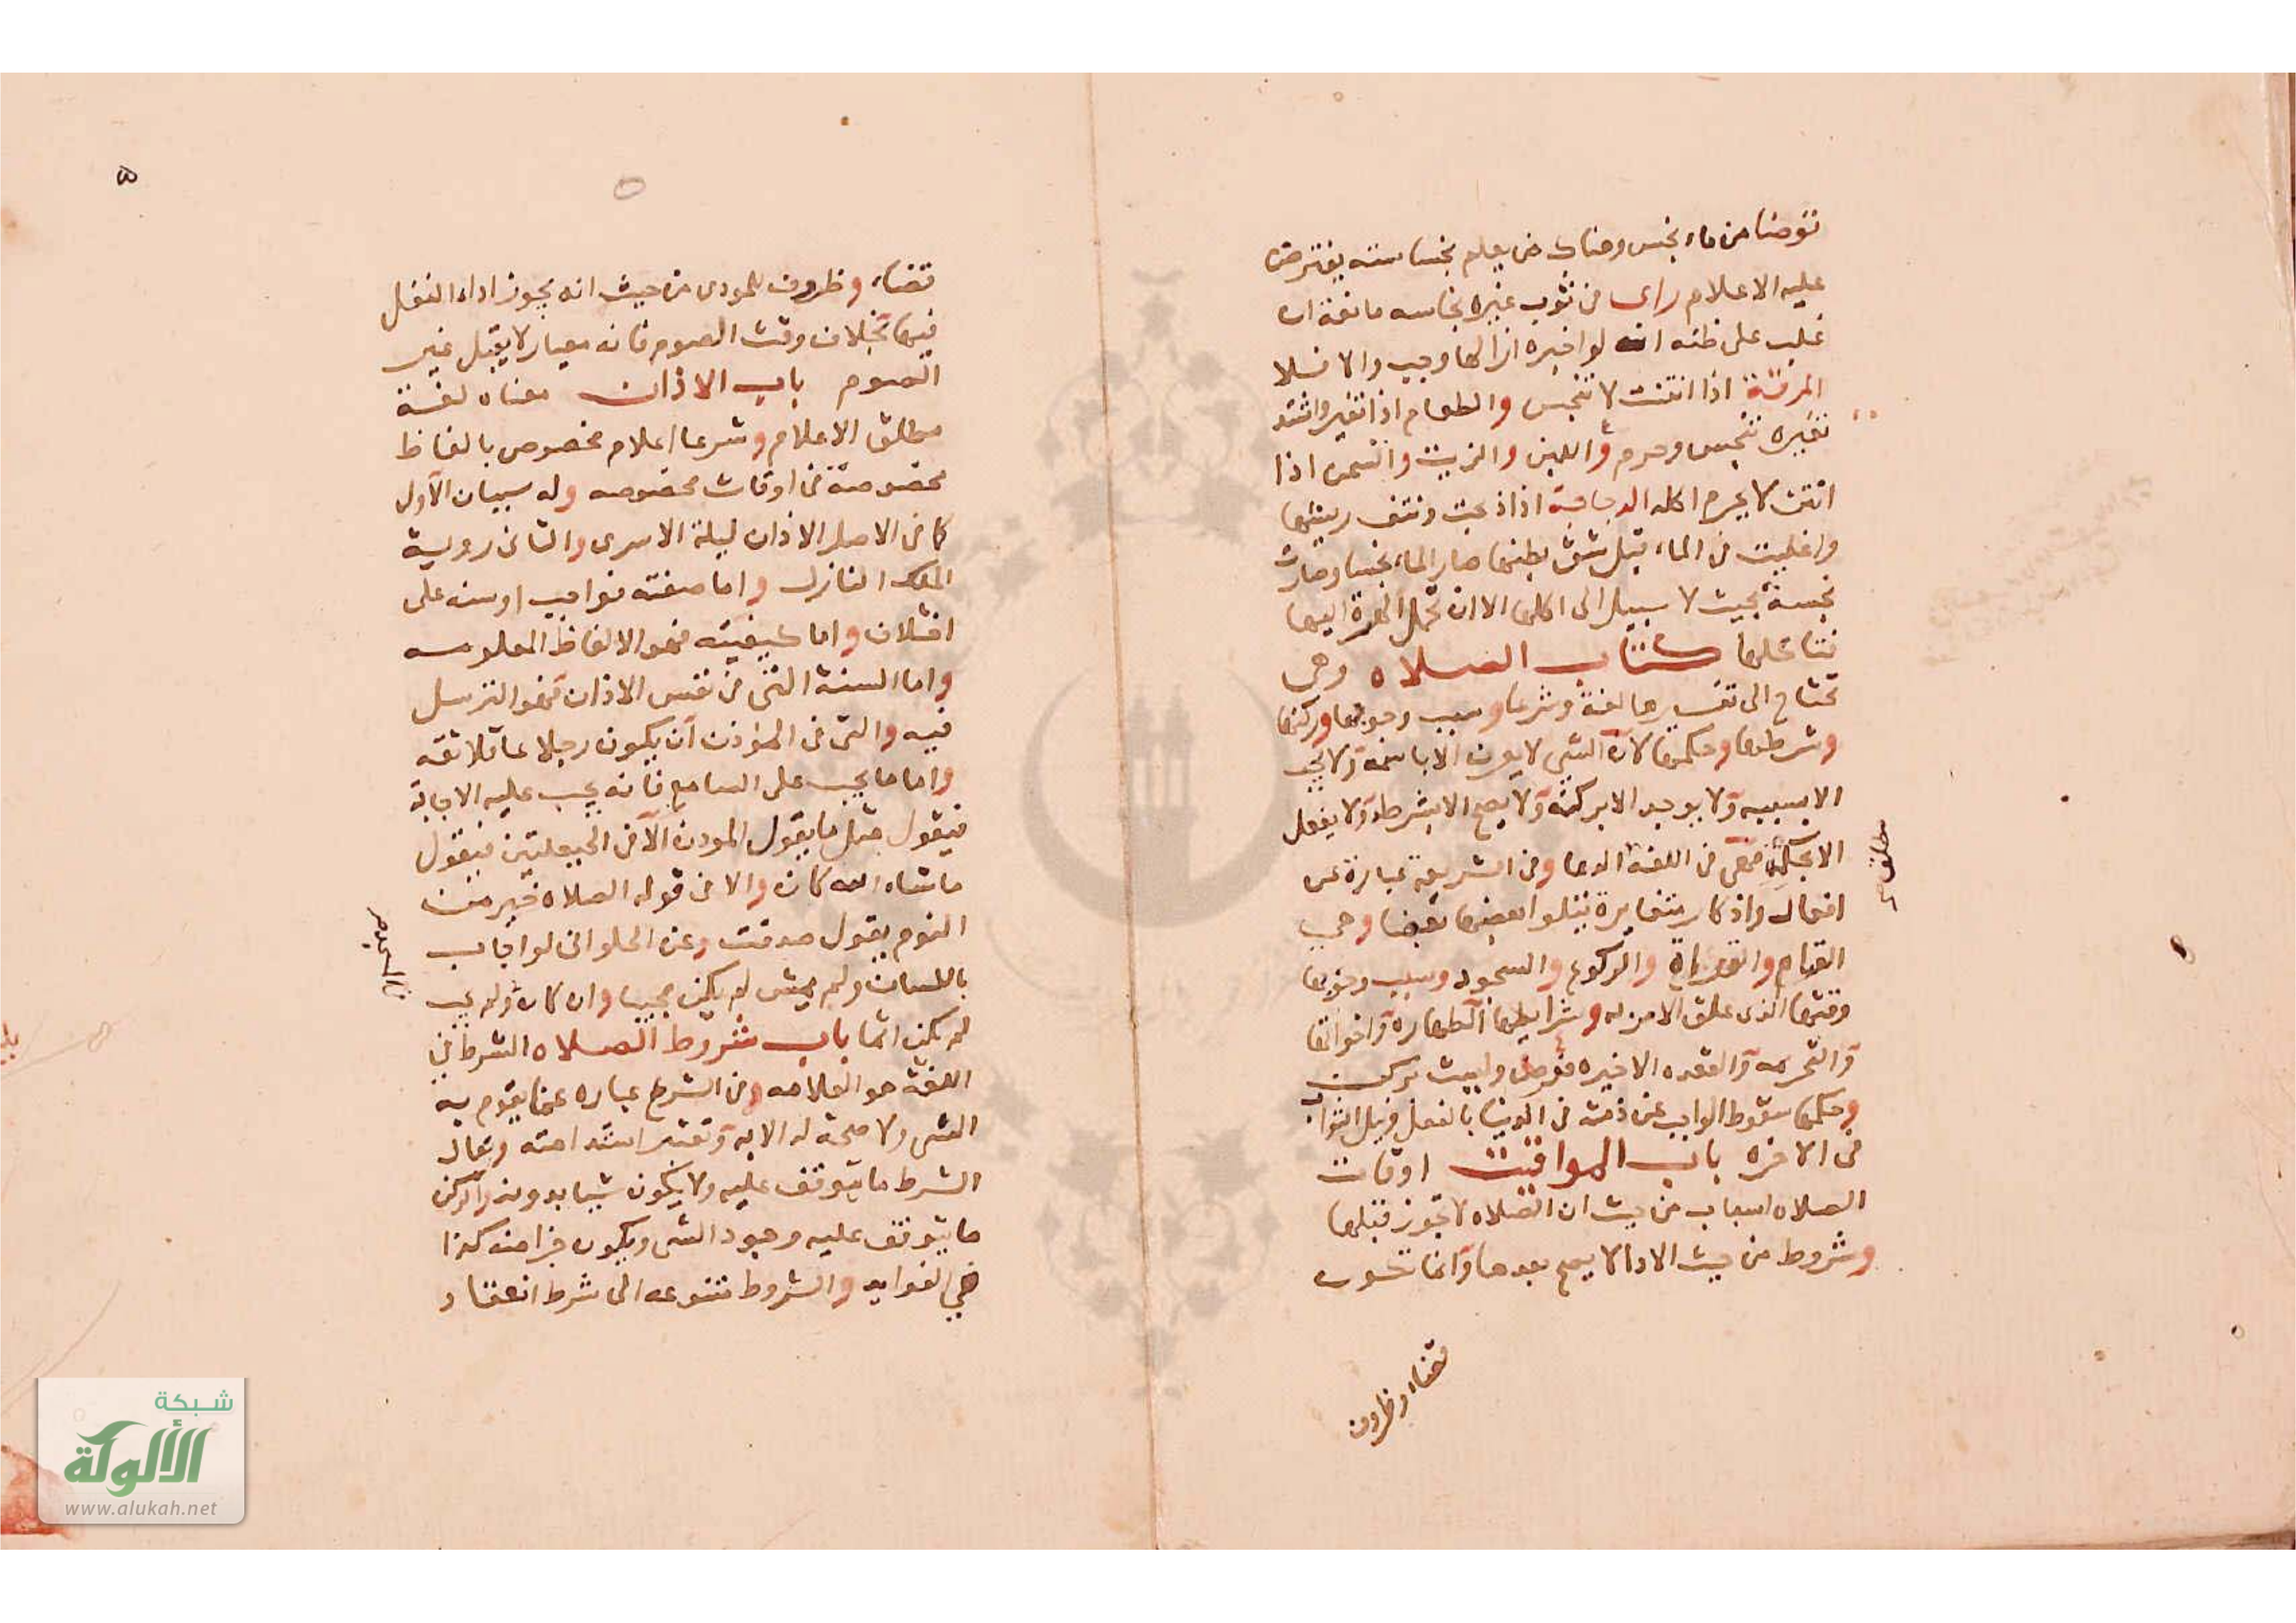 توضا من ماء نجس وهناك من يعلم بنجاسته يفترض
عليه الاعلام راى في ثوب غيره نجاسه مانعة ان
غلب على ظنه انه لو اخبره ازالها وجب والا فلا
المرقة اذا انتنت لا تنجس والطعام اذا تغير واشتد
تغيره تنجس وحرم واللبن والزيت والسمن اذا
انتن لا يحرم اكله الدجاجة اذا ذبحت ونتف ريشها
واغليت في الماء قبل شق بطنها صار الماء نجسا وصارت
نجسة بحيث لا سبيل الى اكلها الا ان تحمل الهرة اليها
فتاكلها كتاب الصلاه وهي
تحتاج الى تفسيرها لغة وشرعا وسبب وجوبها وركنها
وشرطها وحكمها لان الشي لا يعرف الا باسمه ولا يجب
الا بسببه ولا يوجد الا بركنه ولا يصح الا بشرطه ولا يفعل
الا بحكمه فهي في اللغة الدعا وفي الشريعة عبارة عن
افعال واذكار متغايرة يتلوا بعضها بعضا وهي
القيام والقراة والركوع والسجود وسبب وجوبها
وقتها الذى علق الامر به وشرايطها الطهاره واخواتها
والتحريمه والقعده الاخيره فرض وليست بركن
وحكمها سقوط الواجب عن ذمته في الدنيا بالفعل ونيل الثواب
في الاخره باب المواقيت اوقات
الصلاه اسباب من حيث ان الصلاه لا تجوز قبلها
وشروط من حيث الادا لا يصح بعدها وانما تكون
قضاء وظروف
مطلق
٥
قضاء وظروف للمودى من حيث انه يجوز اداء النفل
فيها بخلاف وقت الصوم فانه معيار لا يقبل غير
الصوم باب الاذان معناه لغة
مطلق الاعلام وشرعا اعلام مخصوص بالفاظ
مخصوصة في اوقات مخصوصه وله سببان الاول
كا في الاصل الاذان ليلة الاسرى والثاني روية
الملك النازل واما صفته فواجب او سنه على
اختلاف واما كيفيته فهو الالفاظ المعلومه
واما السنة التي في نفس الاذان فهو الترسل
فيه والتي في المؤذن ان يكون رجلا عاقلا ثقه
واما ما يجب على السامع فانه يجب عليه الاجابة
فيقول مثل ما يقول المودن الا في الحيعلتين فيقول
ما شاء الله كان والا في قوله الصلاه خير من
النوم يقول صدقت وعن الحلواني لو اجاب
باللسان ولم يمش لم يكن مجيبا وان كان ولم يجب
لم يكن اثما باب شروط الصلاه الشرط في
اللغة هو العلامه وفي الشرع عباره عما يقوم به
الشي ولا صحة له الا به وتعتبر استدامته ويقال
الشرط ما يتوقف عليه ولا يكون شيا بدونه والركن
ما يتوقف عليه وجود الشي ويكون جزا منه كذا
في الفوايد والشروط متنوعه الى شرط انعقاد
شبكة
الألوكة
www.alukah.net